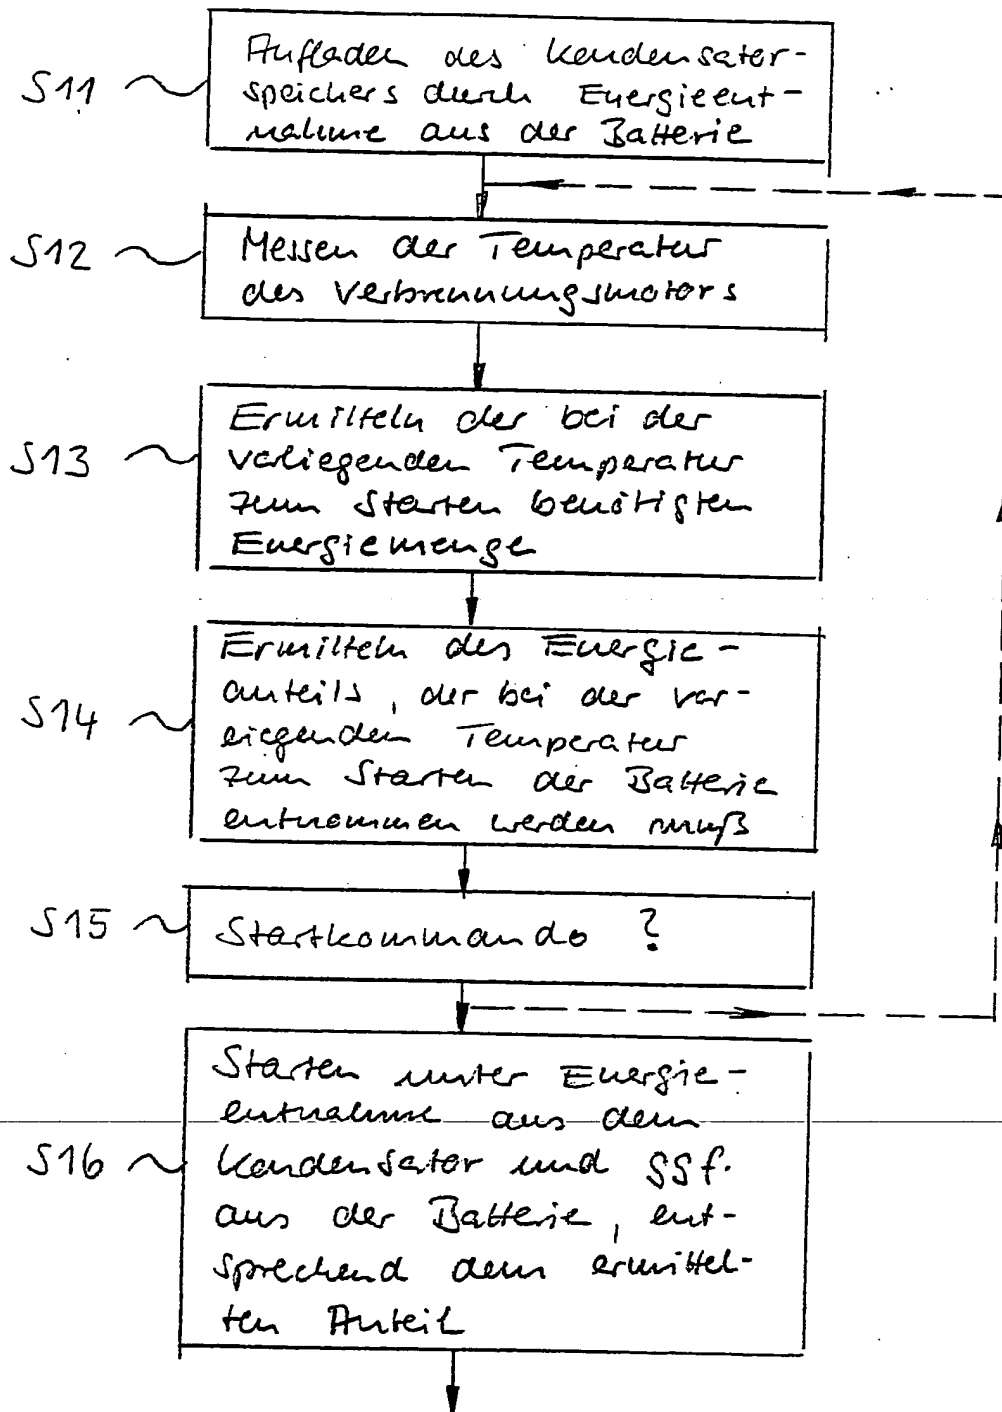 S11
Aufladen des Kondensator-
speichers durch Energieent-
nahme aus der Batterie
S12
Messen der Temperatur
des Verbrennungsmotors
S13
Ermitteln der bei der
vorliegenden Temperatur
zum Starten benötigten
Energiemenge
S14
Ermitteln des Energie-
anteils, der bei der vor-
liegenden Temperatur
zum Starten der Batterie
entnommen werden muß
S15
Startkommando ?
S16
Starten unter Energie-
entnahme aus dem
Kondensator und ggf.
aus der Batterie, ent-
sprechend dem ermittel-
ten Anteil